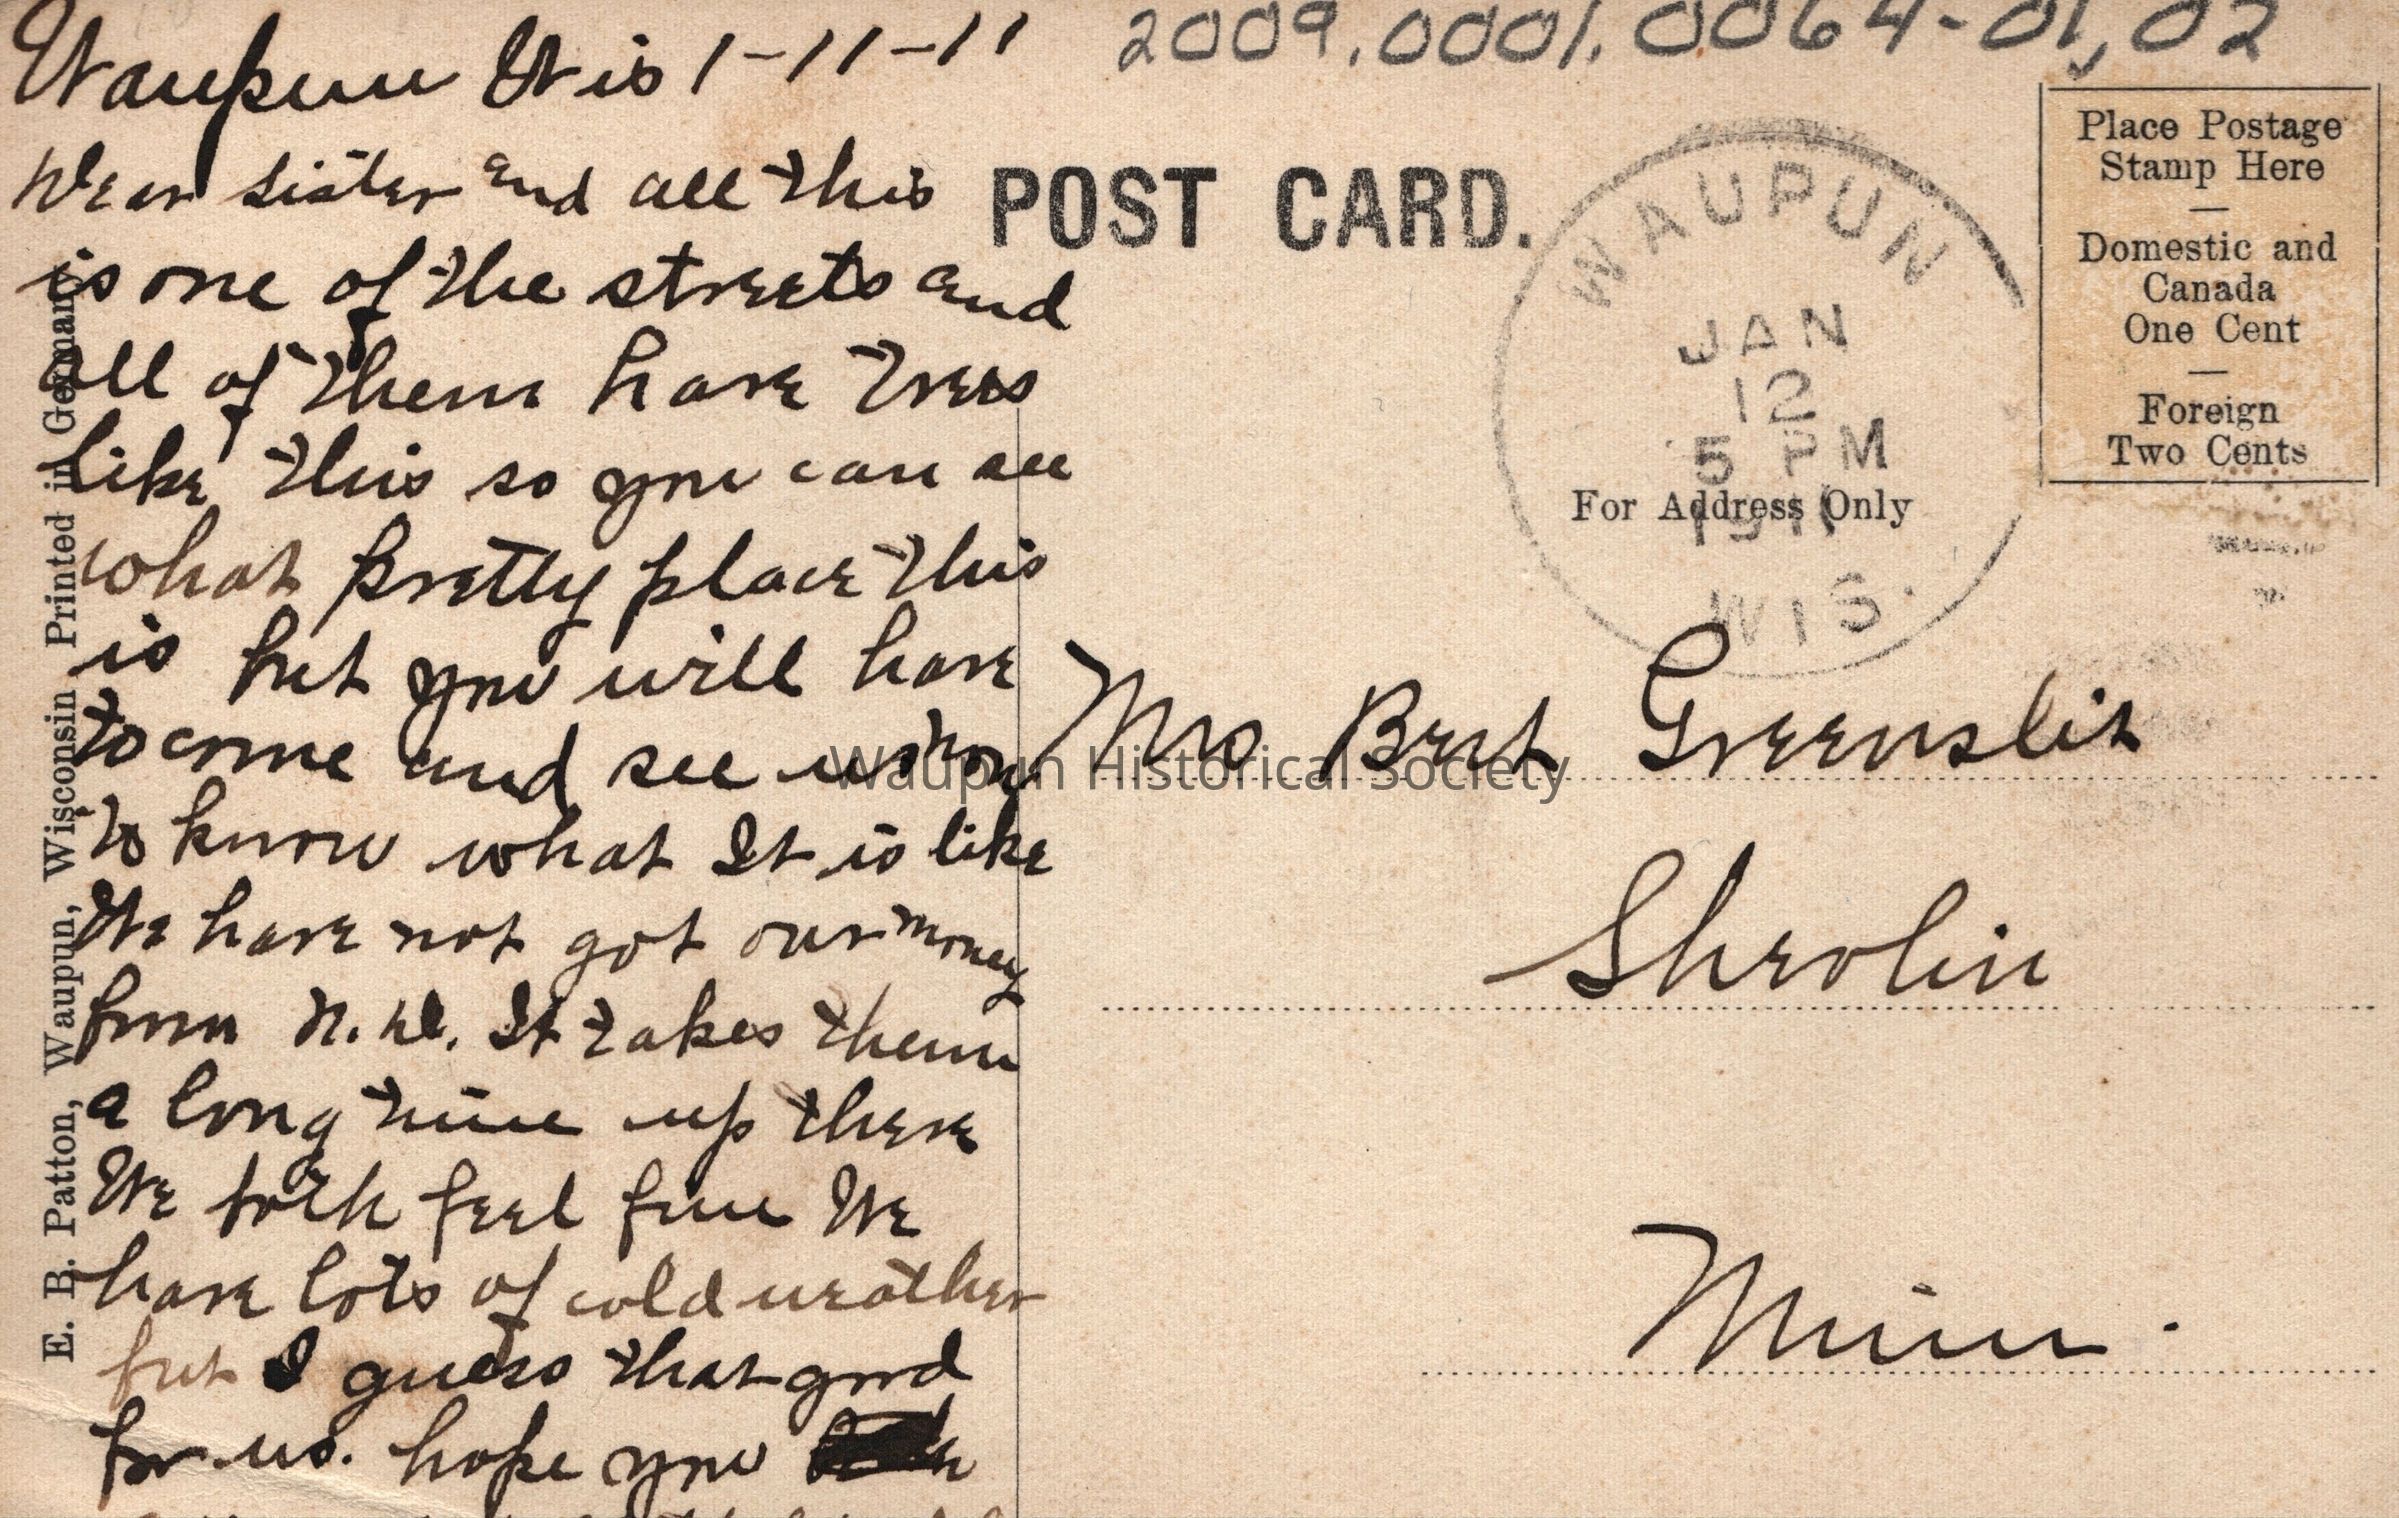 2009.0001.0064-01,02
Waupun Wis 1-11-11
Dear Sister and all this
is one of the streets and
all of them have trees
like this so you can see
what pretty place this
is but you will have
to come and see us now
to know what It is like
We have not got our money
from N. D. It takes them
a long time up there
We both feel fine We
have lots of cold weather
but I guess that good
for us. hope you
POST CARD.
WAUPUN
JAN
12
5 PM
1911
WIS.
Place Postage
Stamp Here
Domestic and
Canada
One Cent
Foreign
Two Cents
For Address Only
Mrs Bert Greenslit
Shevlin
Minn.
E. B. Patton, Waupun, Wisconsin Printed in Germany
Waupun Historical Society